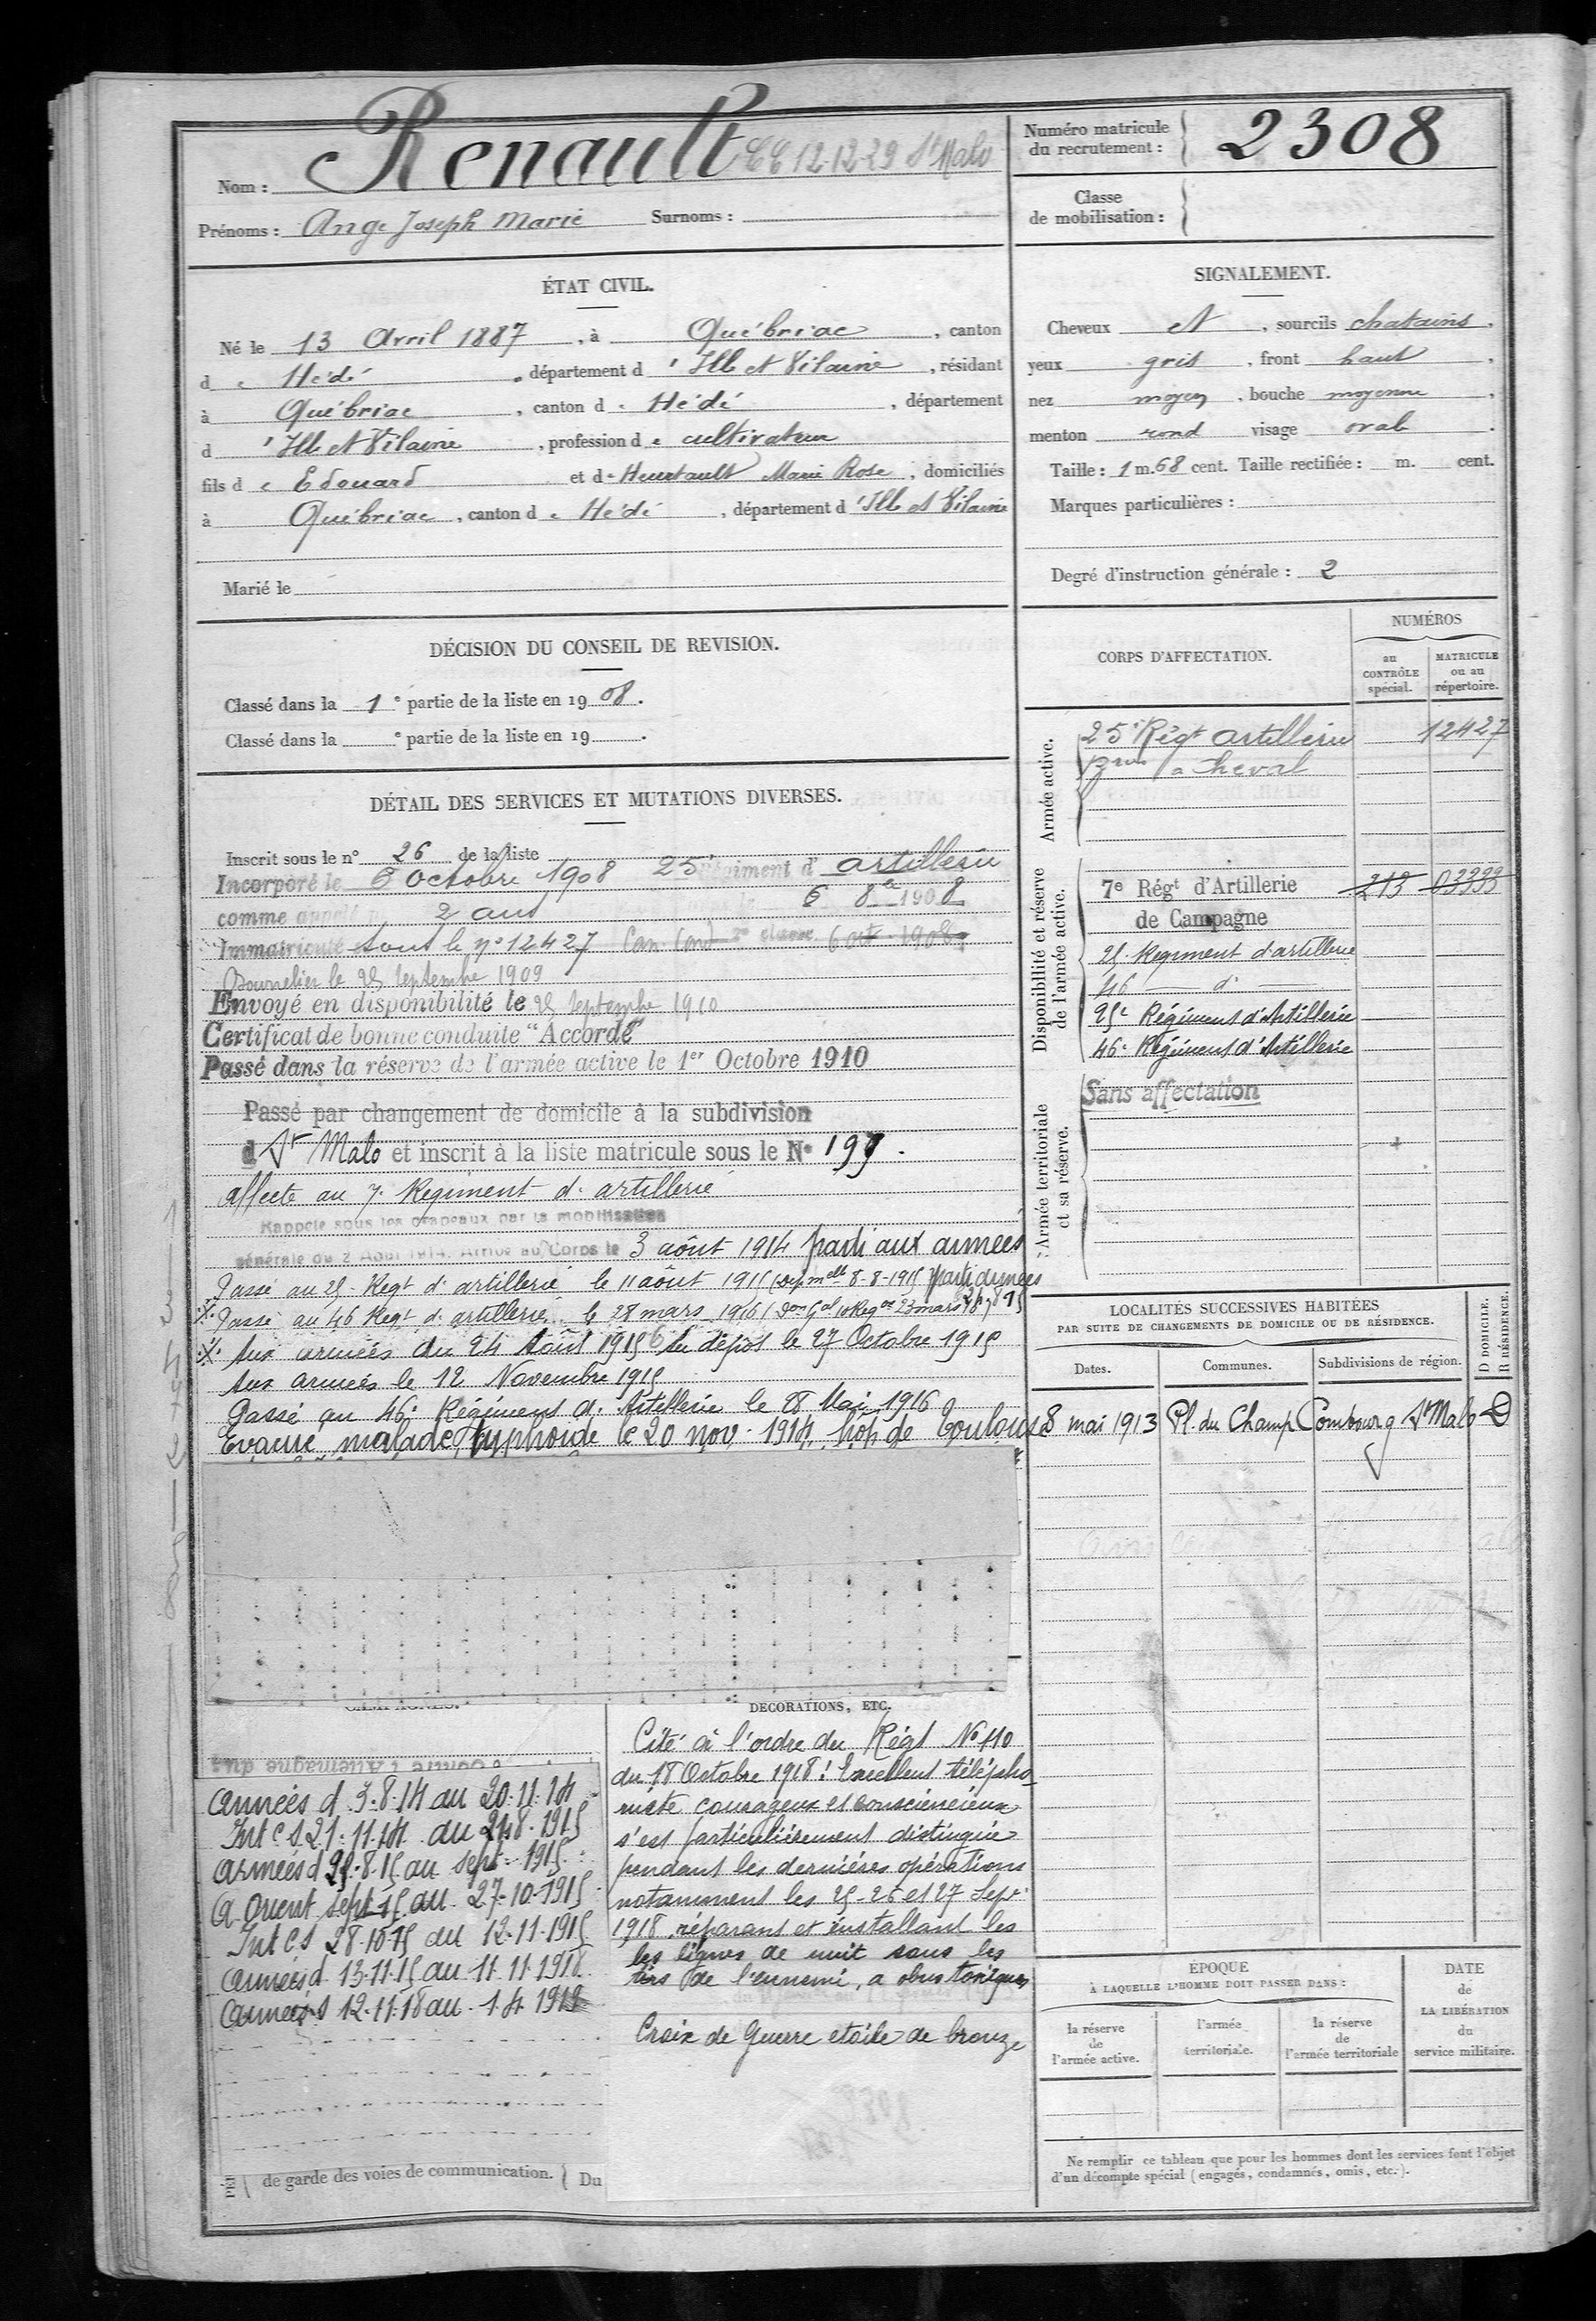 Nom : Renault CC 12-12-29 St Malo
Prénoms : Ange Joseph Marie Surnoms :
Numéro matricule du recrutement : 2308
Classe de mobilisation :
ÉTAT CIVIL.
Né le 13 Avril 1887, à Québriac, canton
d e Hédé, département d 'Ille et Vilaine, résidant
à Québriac, canton d e Hédé, département
d 'Ille et Vilaine, profession d e cultivateur
fils d e Edouard et d e Heurtault Marie Rose, domiciliés
à Québriac, canton d e Hédé, département d 'Ille et Vilaine
Marié le
SIGNALEMENT.
Cheveux et, sourcils chatains,
yeux gris, front haut,
nez moyen, bouche moyenne,
menton rond visage oval.
Taille : 1 m. 68 cent. Taille rectifiée : m. cent.
Marques particulières :
Degré d'instruction générale : 2
DÉCISION DU CONSEIL DE REVISION.
Classé dans la 1e partie de la liste en 1908.
Classé dans la e partie de la liste en 19 .
DÉTAIL DES SERVICES ET MUTATIONS DIVERSES.
Inscrit sous le n° 26 de la liste
Incorporé le 6 octobre 1908 25e Régiment d' artillerie
comme appelé 2 ans 6 8bre 1908
Immatriculé sous le n° 12427 Can. Cond 2e classe 6 oct 1908
Bourrelier le 25 septembre 1909
Envoyé en disponibilité le 25 septembre 1910
Certificat de bonne conduite "Accordé"
Passé dans la réserve de l'armée active le 1er Octobre 1910
Passé par changement de domicile à la subdivision
d St Malo et inscrit à la liste matricule sous le N° 199.
affecté au 7e Régiment d'artillerie
Rappelé sous les drapeaux par la mobilisation
générale du 2 Août 1914. Arrivé au Corps le 3 août 1914 parti aux armées
Passé au 25e Regt d'artillerie le 11 août 1915 (Dep mlle 8-8-1915 parti armées
Passé au 46 Regt d'artillerie le 28 mars 1916 (Don Gal 10 Regon 23 mars
Aux armées du 24 Août 1915 Au dépôt le 27 Octobre 1915
Aux armées le 12 Novembre 1915
Passé au 46e Régiment d'Artillerie le 28 Mai 1916
Evacué malade typhoïde le 20 nov. 1914 hôp de Toulouse
CORPS D'AFFECTATION.
NUMÉROS
au CONTRÔLE spécial.
MATRICULE ou au répertoire.
Armée active.
25e Régt artillerie 12427
à Cheval
Disponibilité et réserve de l'armée active.
7e Régt d'Artillerie 213 03333
de Campagne
25 Regiment d'artillerie
46 — d° —
25e Régiment d'Artillerie
46e Régiment d'Artillerie
Armée territoriale et sa réserve.
Sans affectation
LOCALITÉS SUCCESSIVES HABITÉES
PAR SUITE DE CHANGEMENTS DE DOMICILE OU DE RÉSIDENCE.
Dates. Communes. Subdivisions de région. D DOMICILE. R RÉSIDENCE.
8 mai 1913 Pl. du Champ Combourg St Malo D
CAMPAGNES.
Armées d 3-8-14 au 20-11-14
Int C S 21-11-14 au 24-8-1915
Armées d 25-8-15 au sept 1915
A Orient sept 15 au 27-10-1915
Int C S 28-10-15 au 12-11-1915
Armées d 13-11-15 au 11-11-1918
Armées S 12-11-18 au 1-4 1919
de garde des voies de communication. Du
DÉCORATIONS, ETC.
Cité à l'ordre du Régt N° 110
du 18 Octobre 1918 : Excellent télépho-
niste courageux et consciencieux
s'est particulièrement distingué
pendant les dernières opérations
notamment les 25-26 et 27 Septe
1918, réparant et installant les
les lignes de nuit sous les
tirs de l'ennemi, a obus toxiques
Croix de Guerre etoile de bronze
ÉPOQUE
À LAQUELLE L'HOMME DOIT PASSER DANS :
la réserve de l'armée active.
l'armée territoriale.
la réserve de l'armée territoriale
DATE de LA LIBÉRATION du service militaire.
Ne remplir ce tableau que pour les hommes dont les services font l'objet
d'un décompte spécial (engagés, condamnés, omis, etc.).